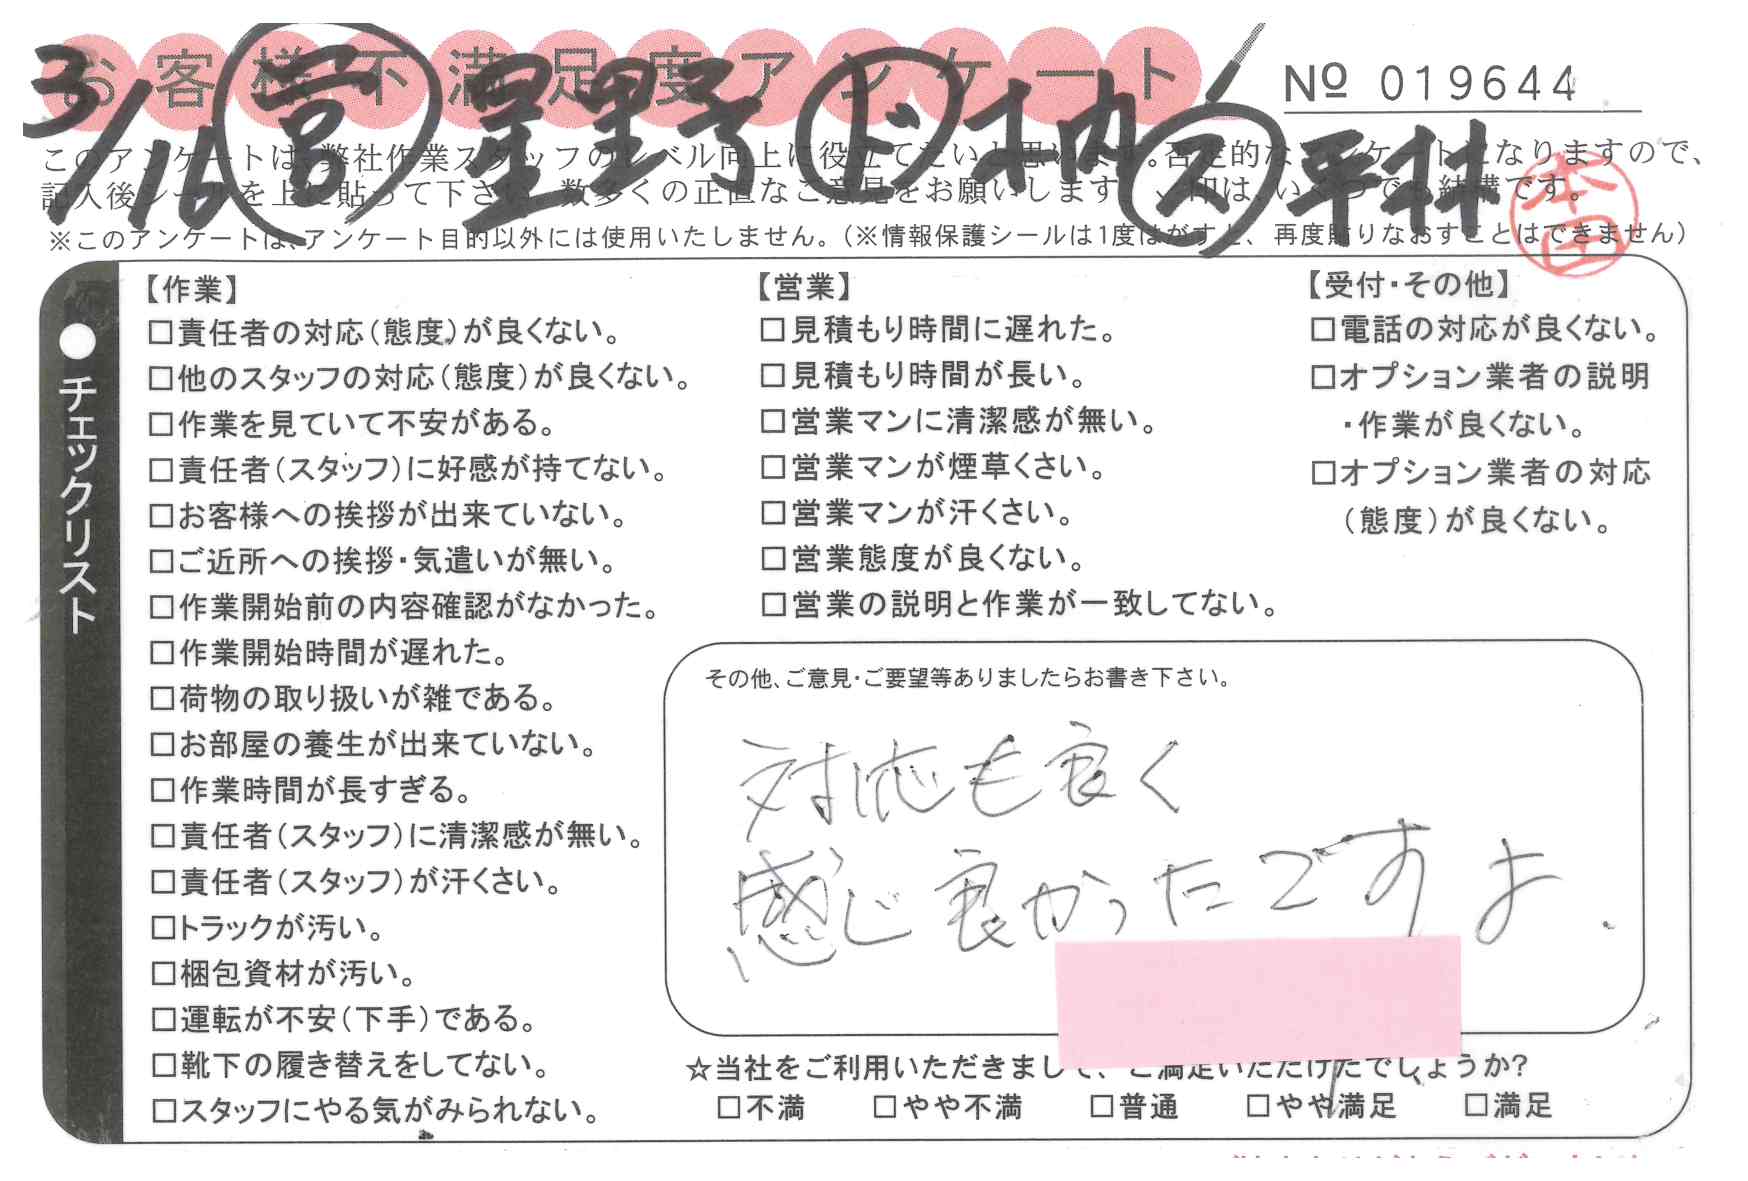 お客様不満足度アンケート
3/16 営 星野 ド 柚 ス 平林
№ 019644
このアンケートは、弊社作業スタッフのレベル向上に役立てたいと思います。否定的なアンケートになりますので、
記入後シールを上に貼って下さい。数多くの正直なご意見をお願いします。✓印は、いくつでも結構です。
本田
※このアンケートは、アンケート目的以外には使用いたしません。(※情報保護シールは1度はがすと、再度貼りなおすことはできません)
●チェックリスト
【作業】
□責任者の対応(態度)が良くない。
□他のスタッフの対応(態度)が良くない。
□作業を見ていて不安がある。
□責任者(スタッフ)に好感が持てない。
□お客様への挨拶が出来ていない。
□ご近所への挨拶・気遣いが無い。
□作業開始前の内容確認がなかった。
□作業開始時間が遅れた。
□荷物の取り扱いが雑である。
□お部屋の養生が出来ていない。
□作業時間が長すぎる。
□責任者(スタッフ)に清潔感が無い。
□責任者(スタッフ)が汗くさい。
□トラックが汚い。
□梱包資材が汚い。
□運転が不安(下手)である。
□靴下の履き替えをしてない。
□スタッフにやる気がみられない。
【営業】
□見積もり時間に遅れた。
□見積もり時間が長い。
□営業マンに清潔感が無い。
□営業マンが煙草くさい。
□営業マンが汗くさい。
□営業態度が良くない。
□営業の説明と作業が一致してない。
【受付・その他】
□電話の対応が良くない。
□オプション業者の説明
・作業が良くない。
□オプション業者の対応
(態度)が良くない。
その他、ご意見・ご要望等ありましたらお書き下さい。
対応も良く
感じ良かったですよ.
☆当社をご利用いただきまして、ご満足いただけたでしょうか?
□不満 □やや不満 □普通 □やや満足 □満足